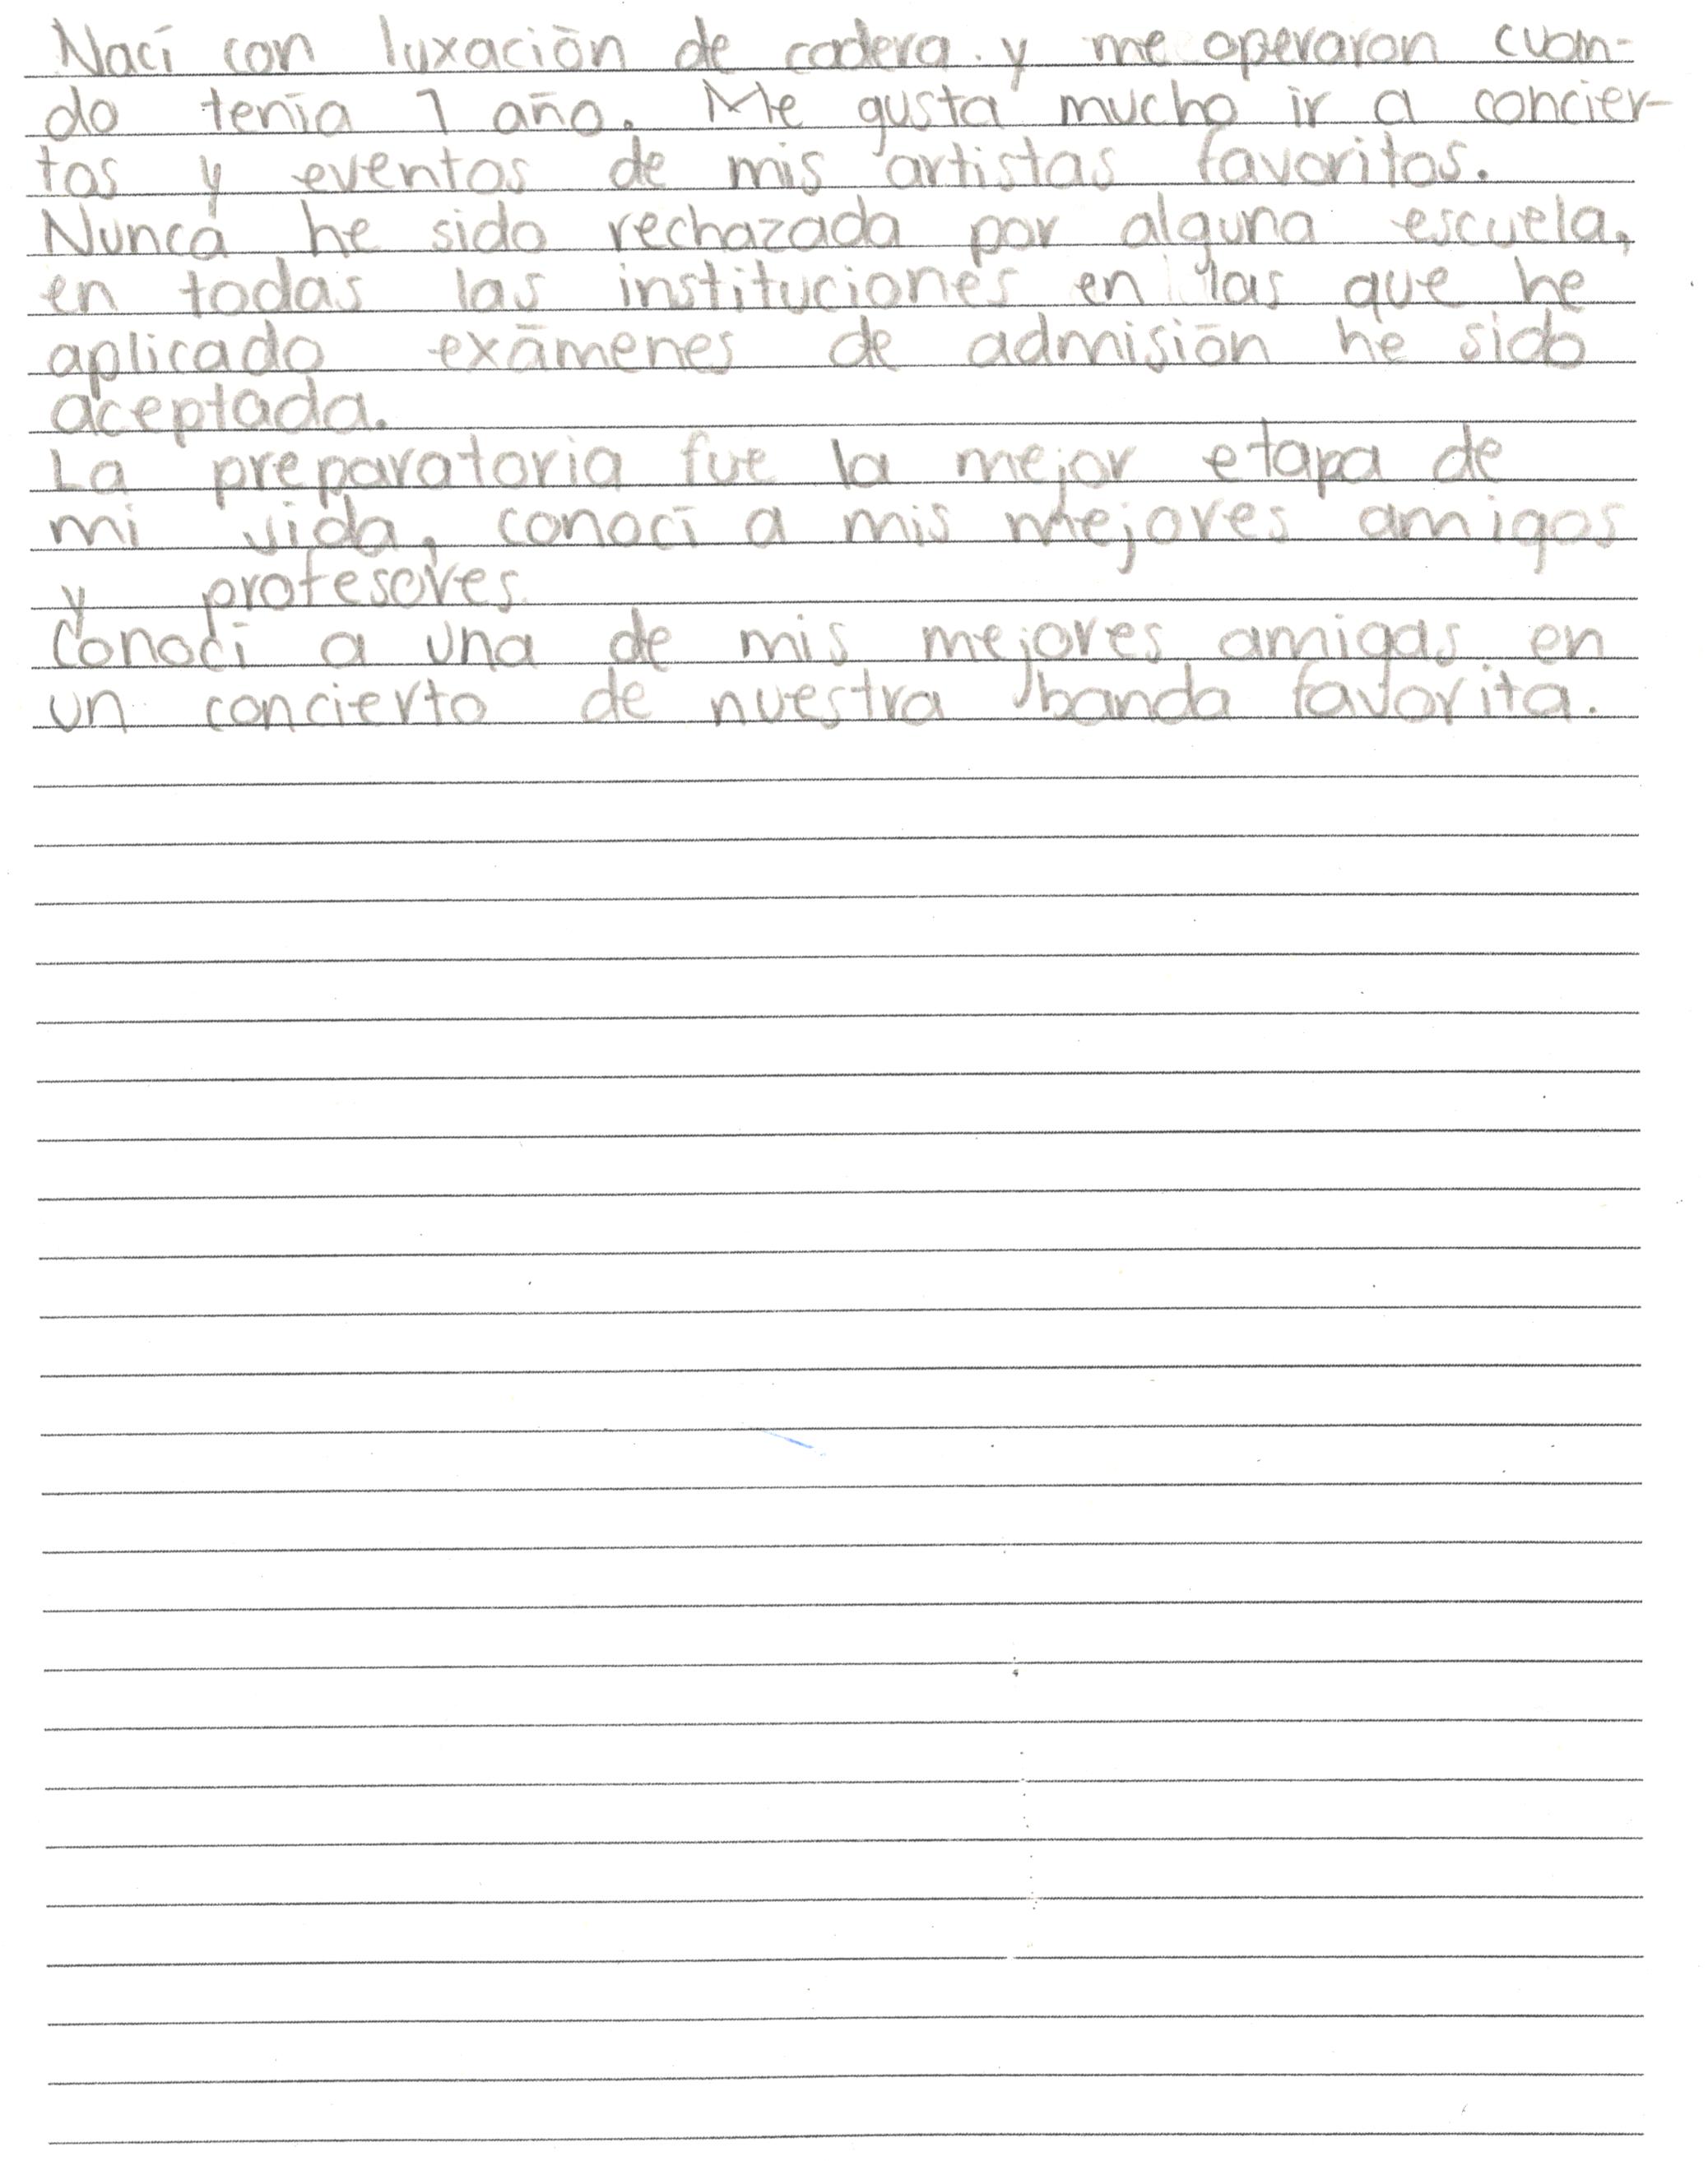 Nací con luxación de cadera y me operaron cuan-
do tenía 1 año. Me gusta mucho ir a concier-
tos y eventos de mis artistas favoritos.
Nunca he sido rechazada por alguna escuela,
en todas las instituciones en las que he
aplicado exámenes de admisión he sido
aceptada.
La preparatoria fue la mejor etapa de
mi vida, conocí a mis mejores amigos
y profesores.
Conocí a una de mis mejores amigas en
un concierto de nuestra banda favorita.